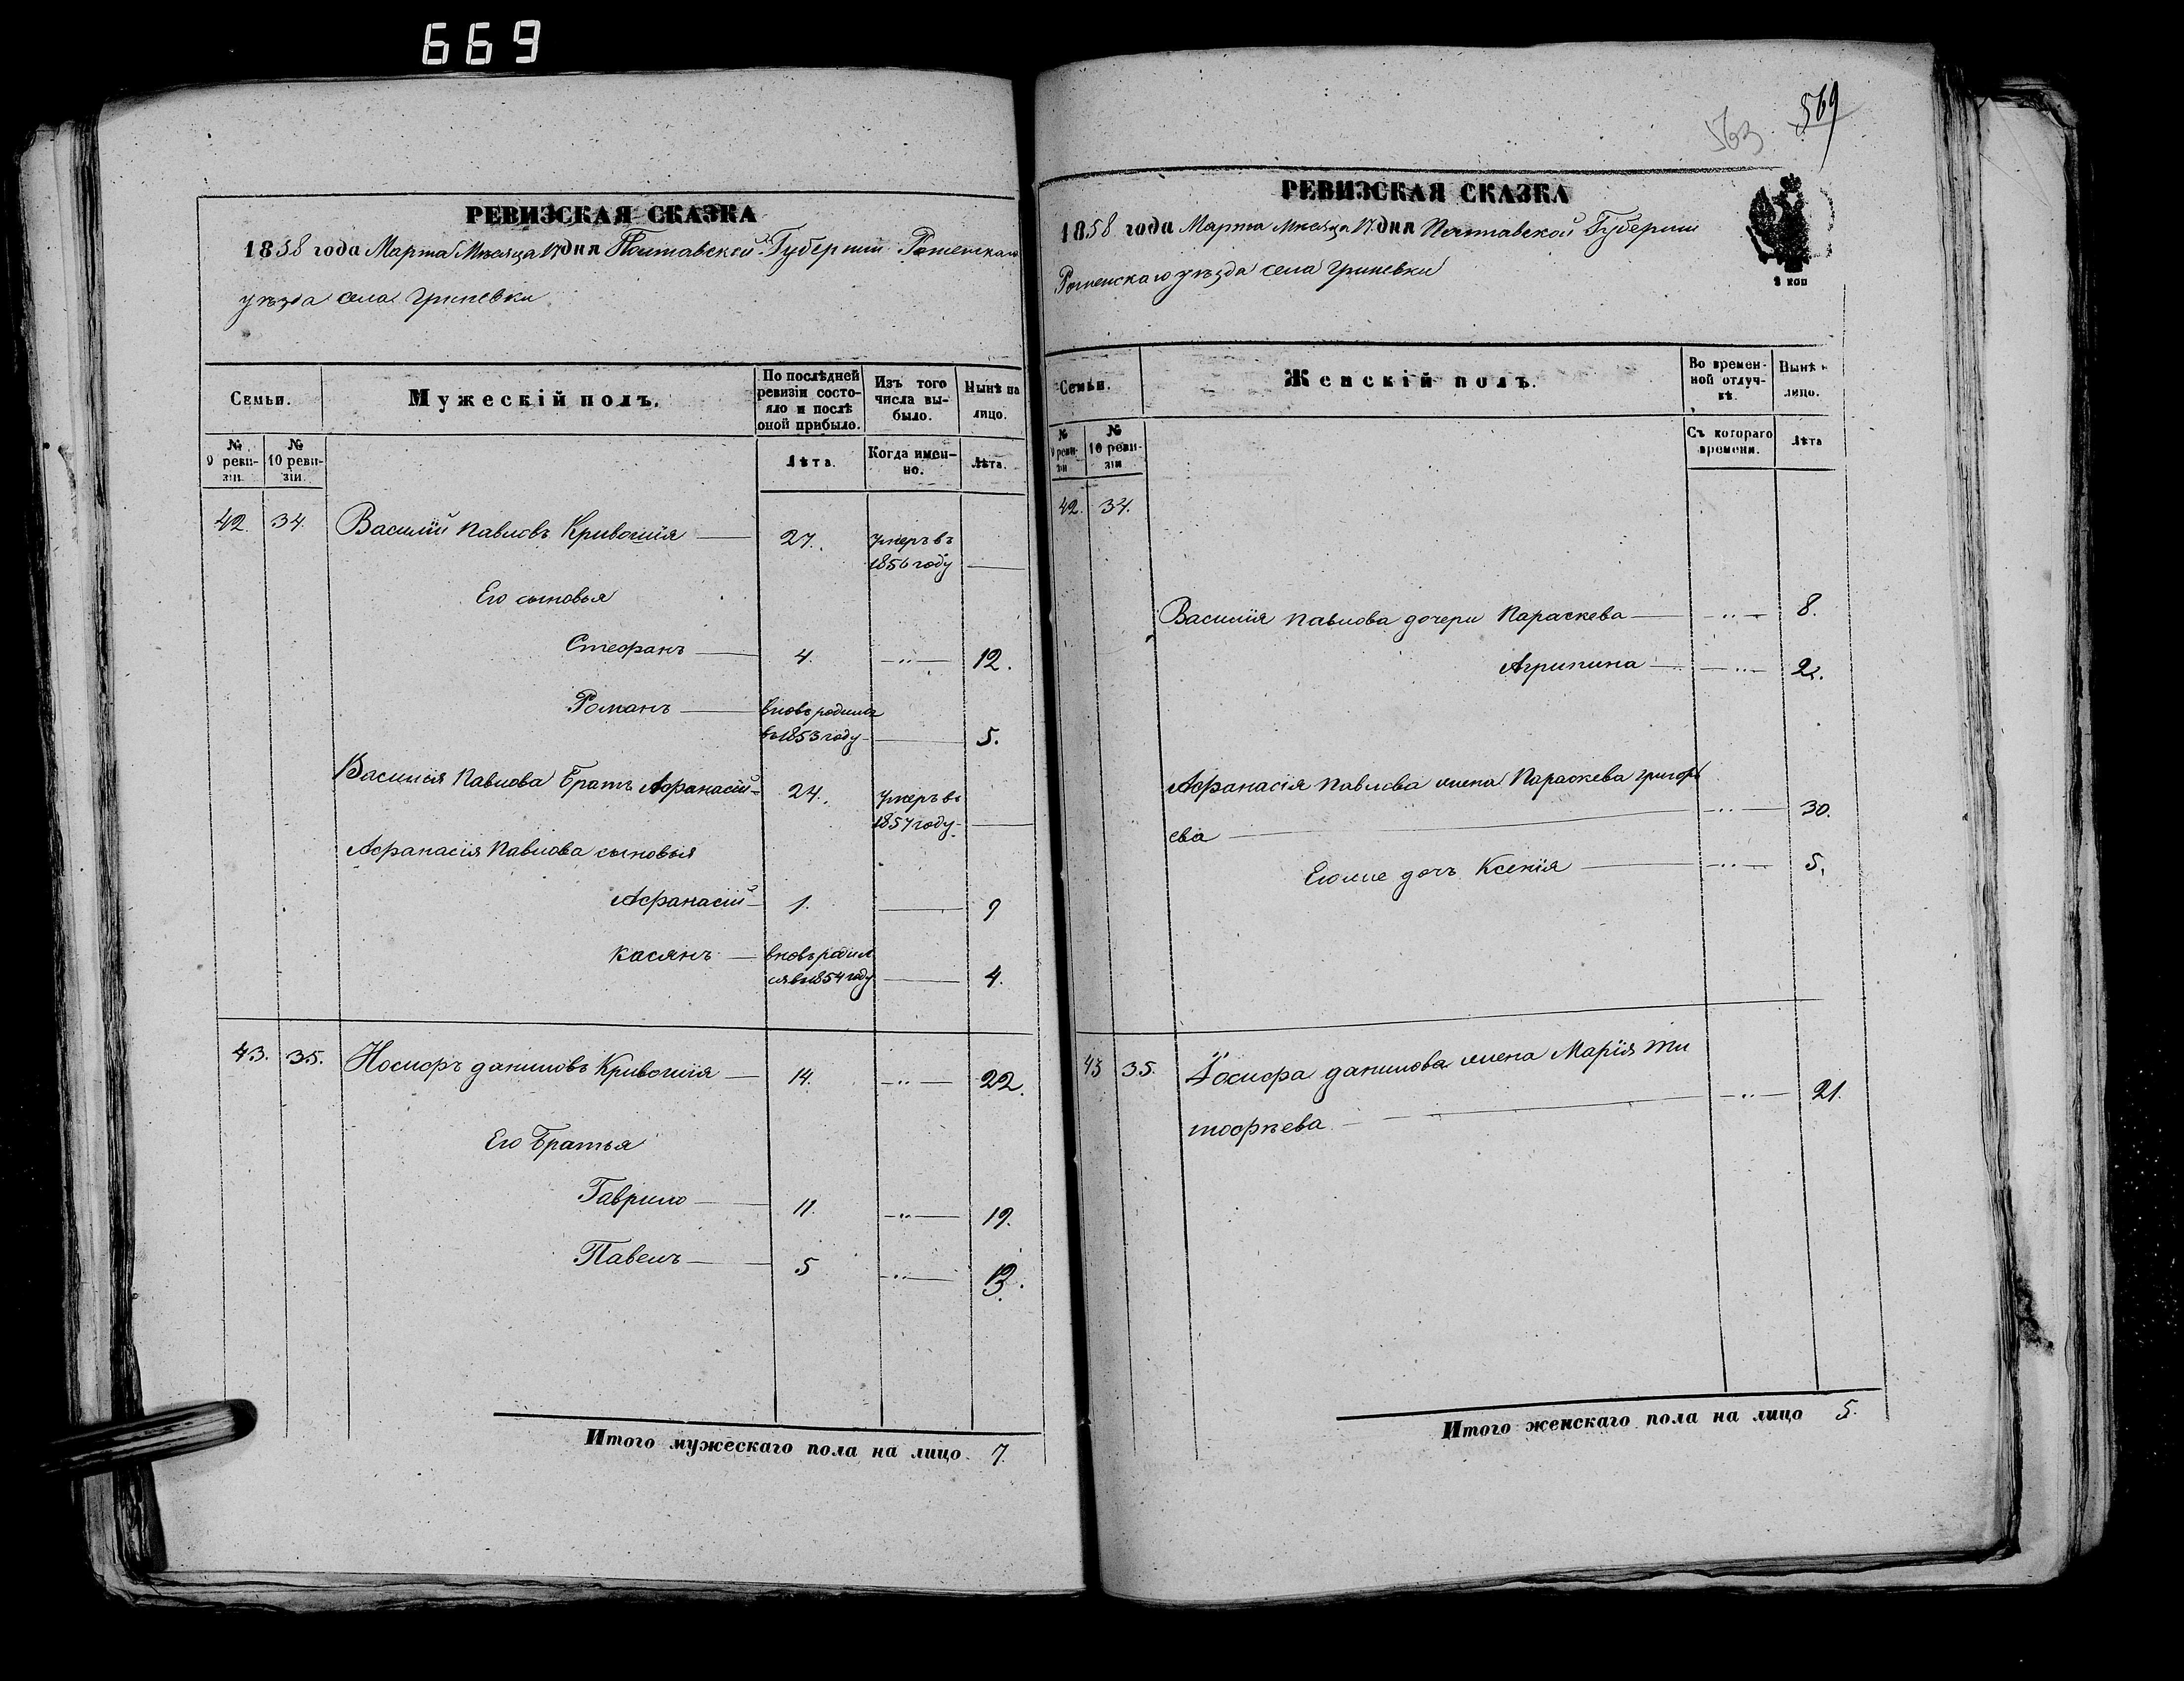 669
РЕВИЗСКАЯ СКАЗКА
1858 года Марта Мѣсяца 17 дня Полтавской Губерніи Роменскаго
уѣзда села Гриневки
Семьи.
Мужескій полъ.
По послѣдней
ревизіи состо-
яло и послѣ
оной прибыло.
Изъ того
числа вы-
было.
Нынѣ на
лицо.
№
9 реви-
зіи.
№
10 реви-
зіи.
Лѣта.
Когда имен-
но.
Лѣта.
42. 34. Василій Павловъ Кривошія 27. Умеръ въ
1856 году
Его сыновья
Стефанъ 4. 12.
Романъ вновь родился
въ 1853 году 5.
Василія Павлова братъ Афанасій 24. Умеръ въ
1857 году
Афанасія Павлова сыновья
Афанасій 1. 9
Касянъ вновь родил
ся въ 1854 году 4.
43. 35. Иосифъ Даниловъ Кривошія 14. 22.
Его братья
Гаврило 11. 19.
Павелъ 5 13.
Итого мужескаго пола на лицо 7.
563 569
РЕВИЗСКАЯ СКАЗКА
1858 года Марта Мѣсяца 17 дня Полтавской Губерніи
Роменскаго уѣзда села Гриневки
3 коп
Семьи.
Женскій полъ.
Во времен-
ной отлуч-
кѣ.
Нынѣ н
лицо.
№
9 реви-
зіи
№
10 реви-
зіи
Съ котораго
времени.
Лѣта
42. 34.
Василія Павлова дочери Параскева 8.
Агрипина 2.
Афанасія Павлова жена Параскева Григорь
ева 30.
Его же дочь Ксенія 5.
43 35. Іосифа Данилова жена Марія Ти
мофѣева 21.
Итого женскаго пола на лицо 5.